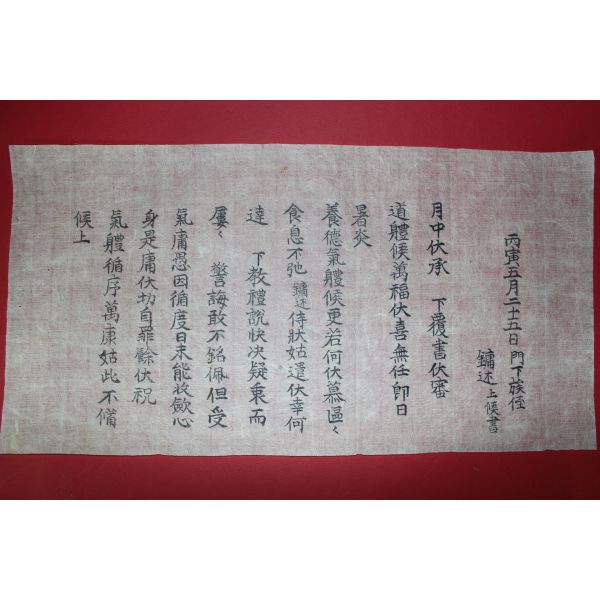 丙寅五月二十五日 門下族侄
鏞述上候書
月中伏承 下覆書伏審
道體候萬福伏喜無任卽日
暑炎
養德氣體候更若何伏慕區〻
食息不弛 鏞述侍狀姑遣伏幸何
達 下教禮說快決疑案而
屢〻 警誨敢不銘佩但受
氣庸愚因循度日未能收斂心
身是庸伏切自罪餘伏祝
氣體循序萬康姑此不備
候上